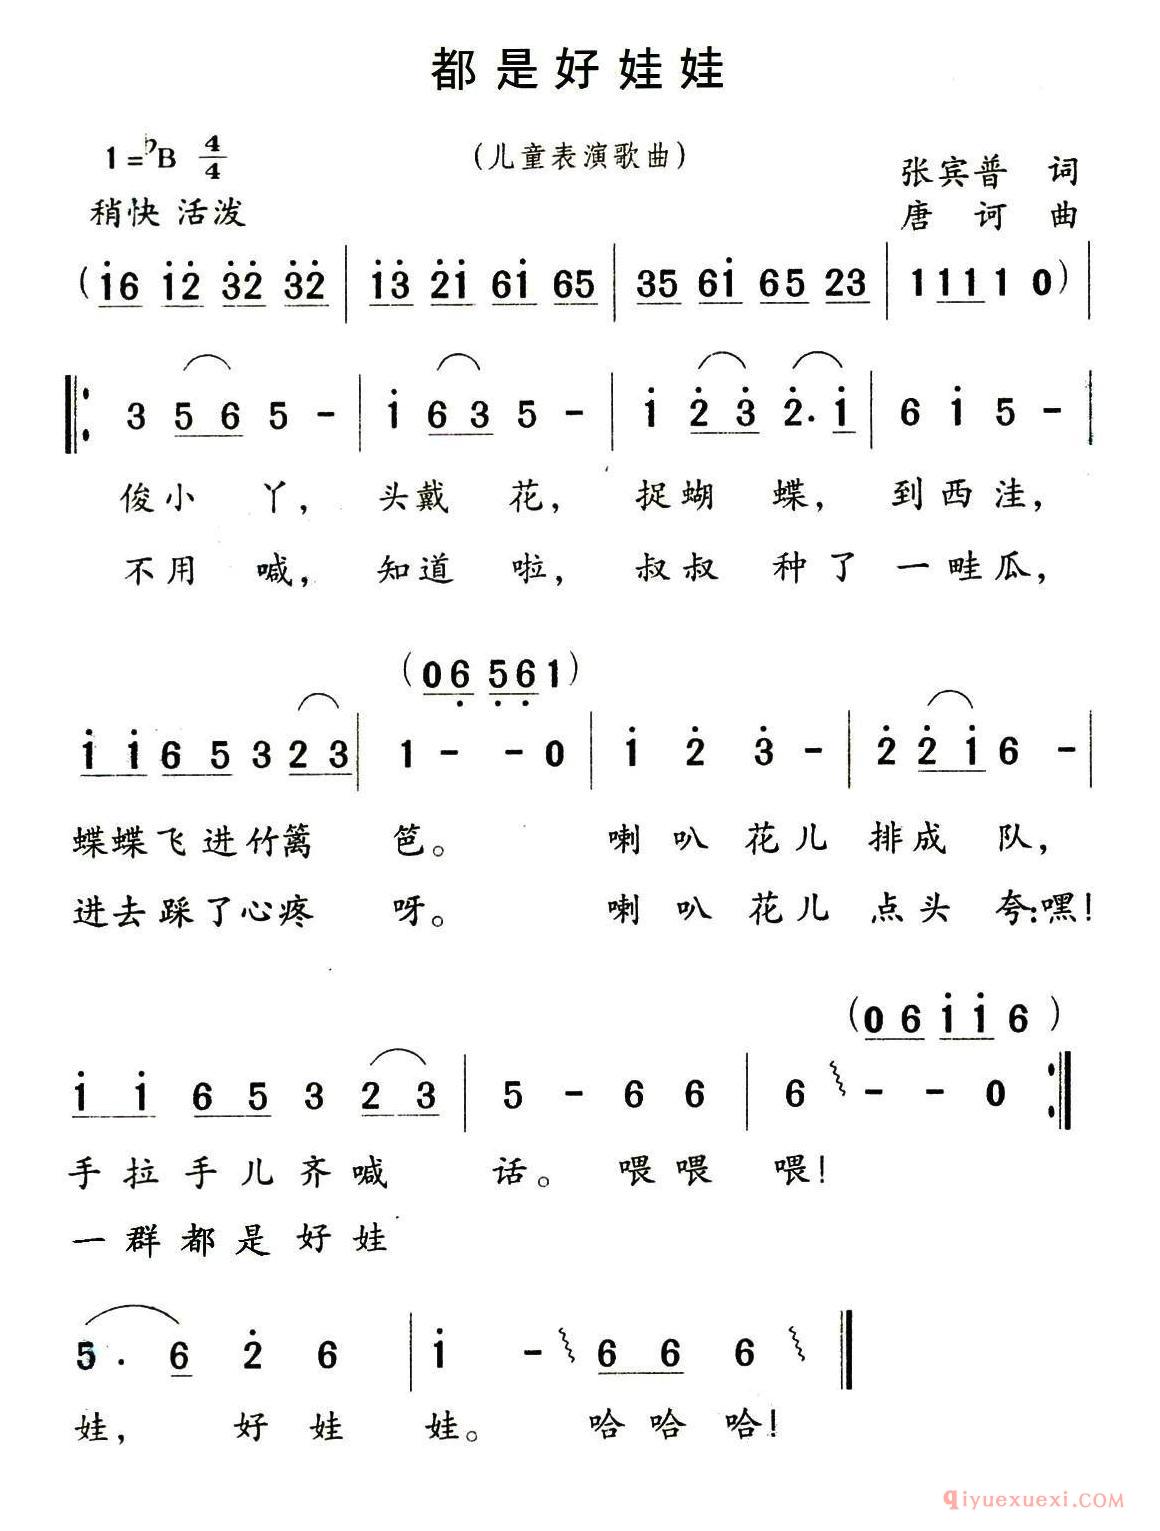 都是好娃娃
1=♭B 4/4
(儿童表演歌曲)
张宾普 词
稍快 活泼
唐诃 曲
(i6 i2 32 32 | i3 2i 6i 65 | 35 6i 65 23 | 1 11 1 0) |
‖: 3 56 5 - | i 63 5 - | i 23 2. i | 6 i 5 - |
俊小 丫, 头戴 花, 捉蝴 蝶, 到西洼,
不用 喊, 知道 啦, 叔叔 种了 一畦瓜,
(06 561)
i i 6 5 3 2 3 | 1 - - 0 | i 2 3 - | 2 2 i 6 - |
蝶蝶飞进竹篱 笆。 喇叭花儿 排成 队,
进去踩了心疼 呀。 喇叭花儿 点头 夸:嘿!
(0 6 i i 6)
i i 6 5 3 2 3 | 5 - 6 6 | 6 - - 0 :‖
手拉手儿齐喊 话。 喂喂 喂!
一群都是好娃
5. 6 2 6 | i - 6 6 6 ‖
娃, 好娃 娃。 哈哈哈!
qiyuexuexi.COM